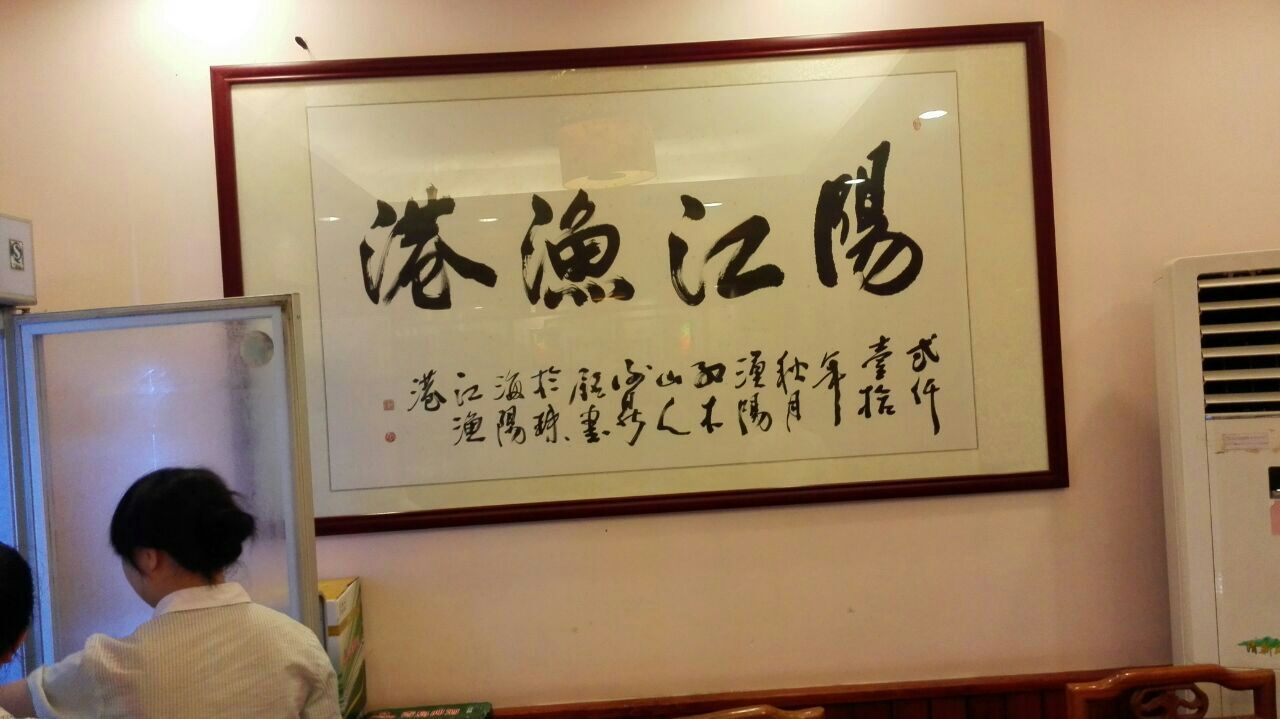 陽江漁港
弍仟
壹拾
年
秋月
陽
木
山人
書
於珠
海陽
江漁
港